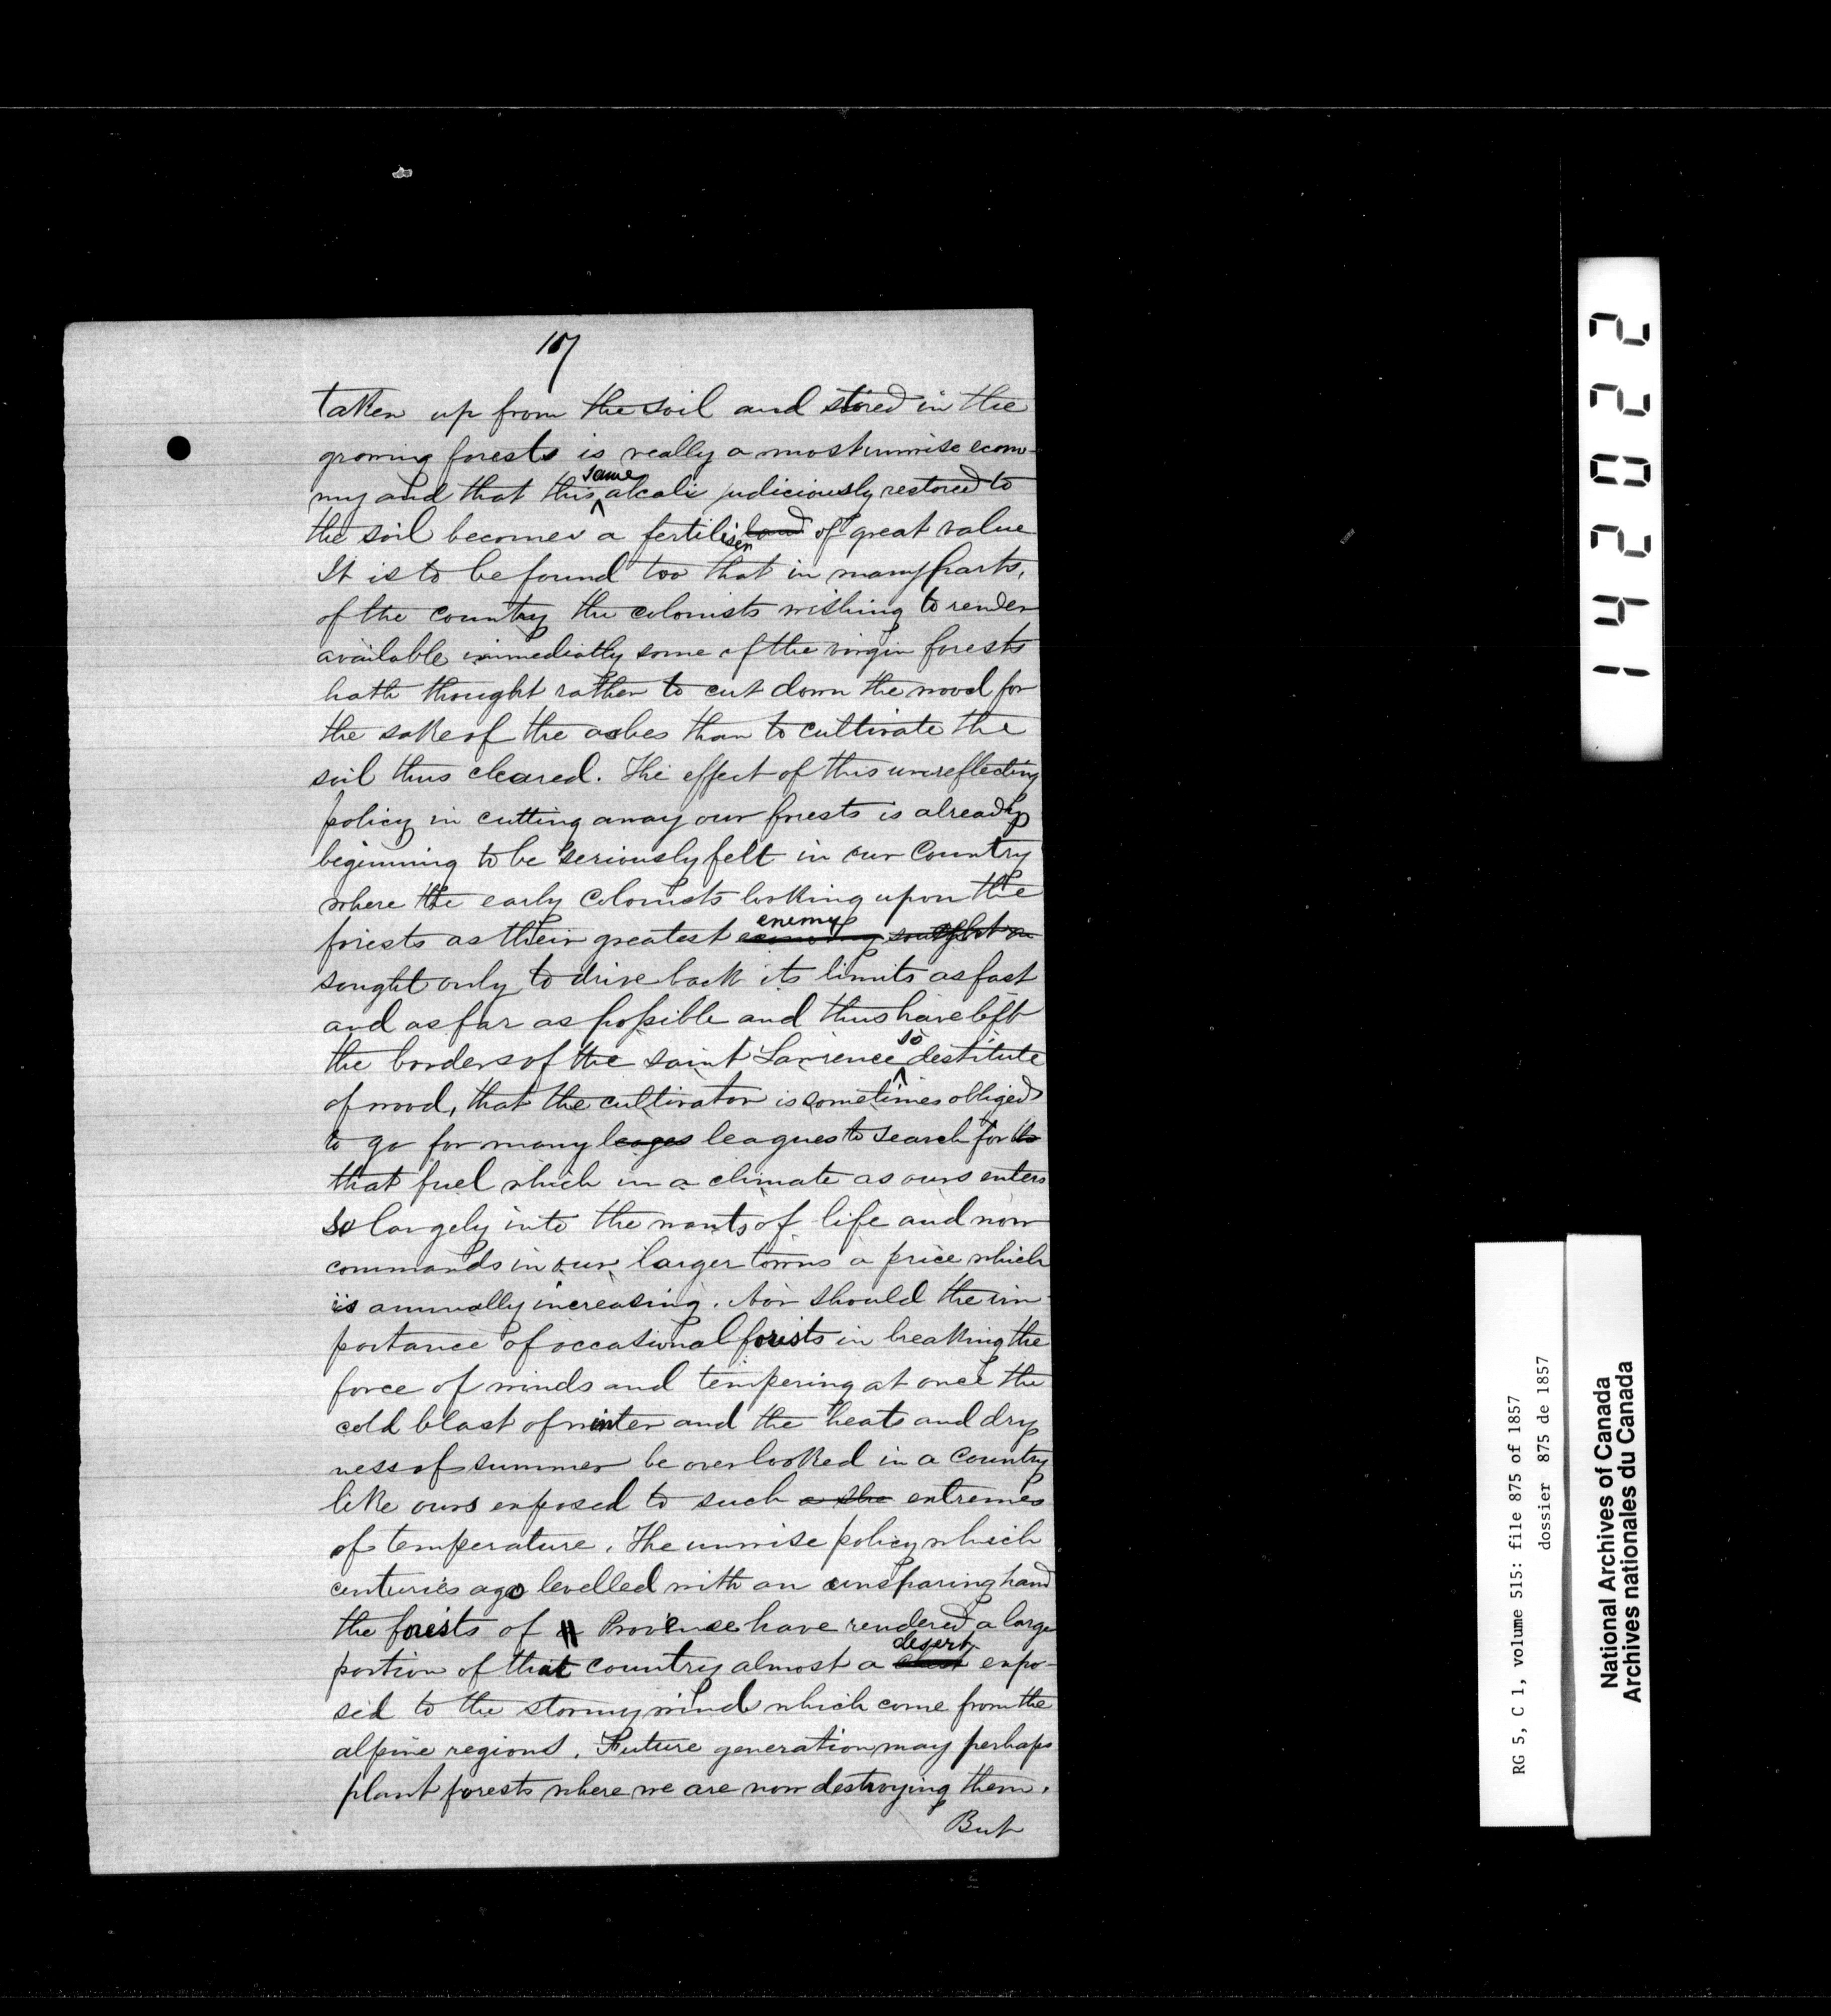 107
taken up from the soil and stored in the
growing forests is really a most unwise econo-
my and that this same alcali judiciously restored to
the soil becomes a fertiliser of great value
It is to be found too that in many parts,
of the country the colonists wishing to render
available immediatly some of the virgin forests
hath thought rather to cut down the wood for
the sake of the ashes than to cultivate the
soil thus cleared. The effect of this unreflecting
policy in cutting away our forests is already
beginning to be seriously felt in our Country
where the early Colonists looking upon the
forists as their greatest enemy
sought only to drive back its limits as fast
and as far as possible and thus have left
the borders of the saint Lawrence so destitute
of wood, that the cultivator is sometimes obliged
to go for many leages leagues to search for
that fuel which in a climate as ours enters
so largely into the wants of life and now
commands in our larger towns a price which
is annually increasing. Nor should the im-
portance of occasional forists in breaking the
force of winds and tempering at once the
cold blast of winter and the heats and dry
ness of summer be overlooked in a Country
like ours exposed to such a she extremes
of temperature. The unwise policy which
centuries ago levelled with an unsparing hand
the forists of Provence have rendered a large
portion of that country almost a desert expo-
sed to the stormy wind which come from the
alpine regions. Future generation may perhaps
plant forests where we are now destroying them.
But
142022
RG 5, C 1, volume 515: file 875 of 1857
dossier 875 de 1857
National Archives of Canada
Archives nationales du Canada